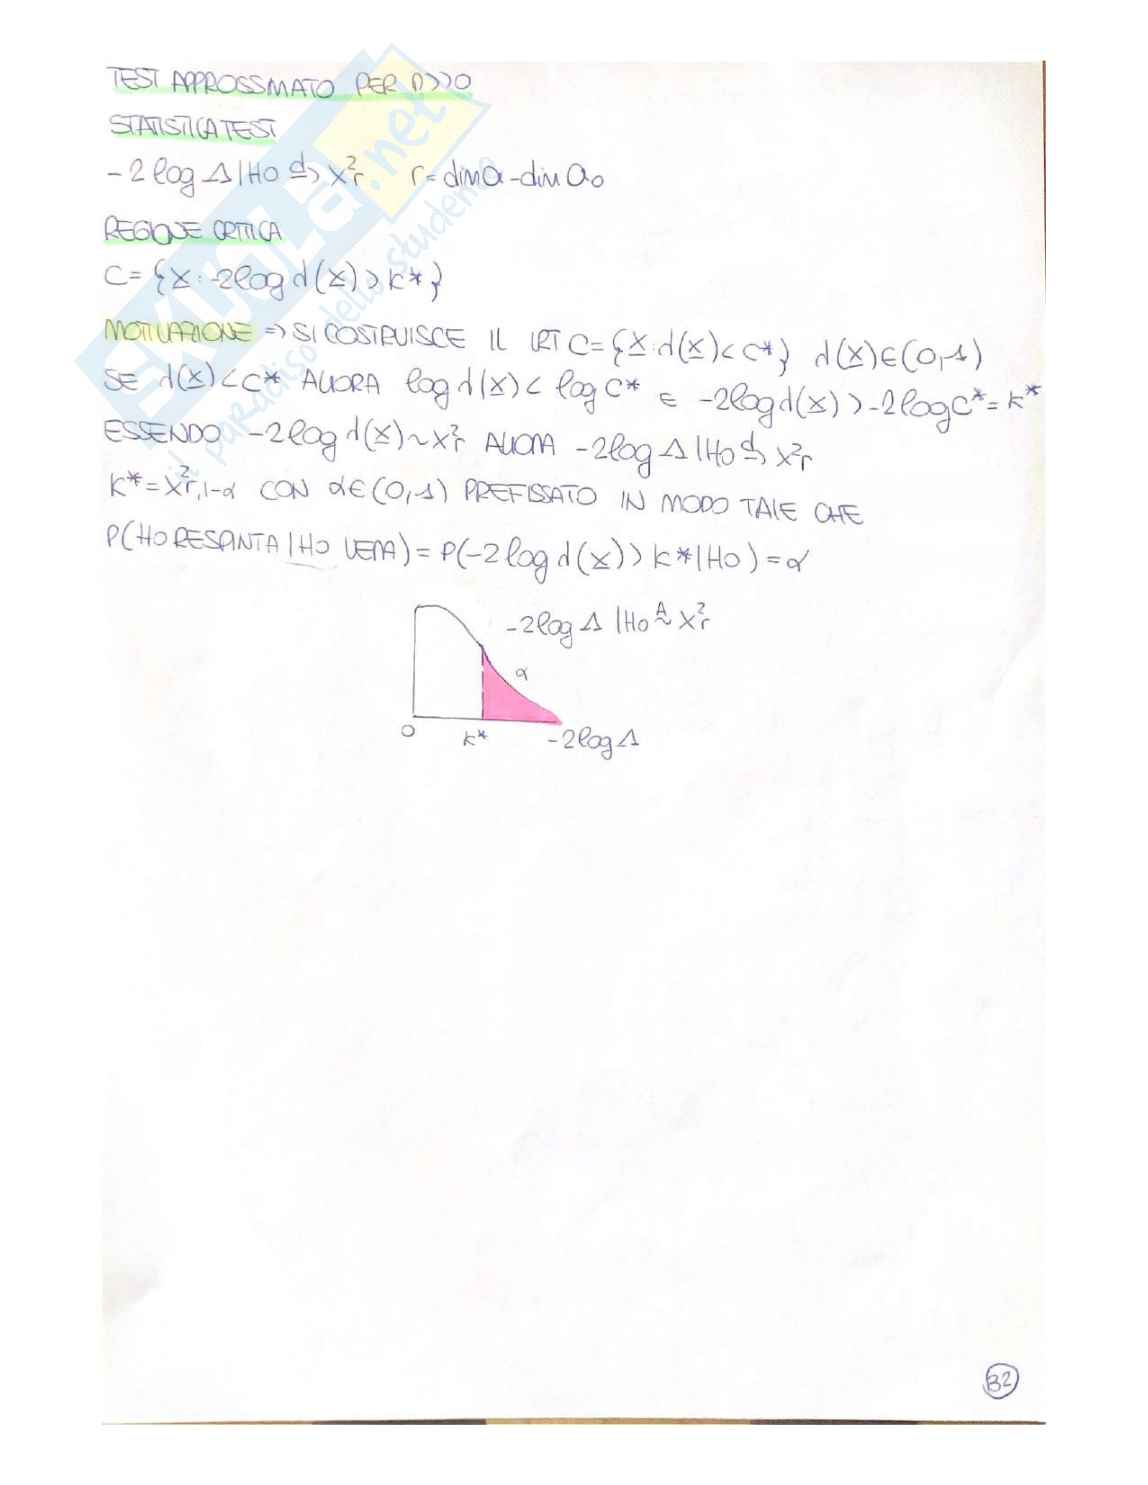 TEST APPROSSIMATO PER n>>0
STATISTICA TEST
-2 log Λ | H0 →ᵈ χ²r    r = dimΩ - dimΩ0
REGIONE CRITICA
C = {x : -2log λ(x) > k*}
MOTIVAZIONE => SI COSTRUISCE IL LRT C = {x : λ(x) < c*} λ(x) ∈ (0,1)
SE λ(x) < c* ALLORA log λ(x) < log c* E -2log λ(x) > -2log c* = k*
ESSENDO -2log λ(x) ~ χ²r ALLORA -2log Λ | H0 →ᵈ χ²r
k* = χ²r,1-α CON α ∈ (0,1) PREFISSATO IN MODO TALE CHE
P(H0 RESPINTA | H0 VERA) = P(-2log λ(x) > k* | H0) = α
-2log Λ | H0 ~ᴬ χ²r
α
0 k* -2log Λ
32
SKUOLA.net
il paradiso dello studente